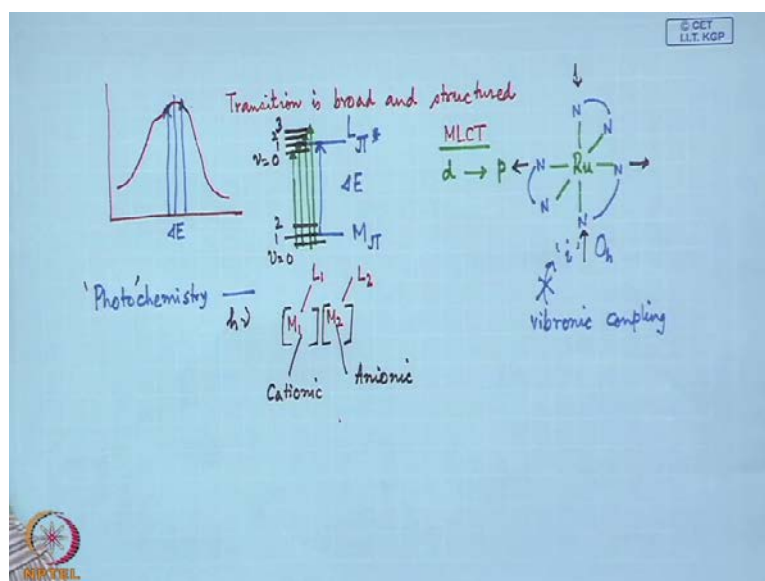 © CET
I.I.T. KGP
Transition is broad and structured
3
2
1
ν=0
L π*
ΔE
2
1
ν=0
M π
ΔE
MLCT
d → p
N
N
N — Ru — N
N
N
'i' Oh
vibronic coupling
'Photo'chemistry —
hν
L1 L2
[M1] [M2]
Cationic
Anionic
NPTEL